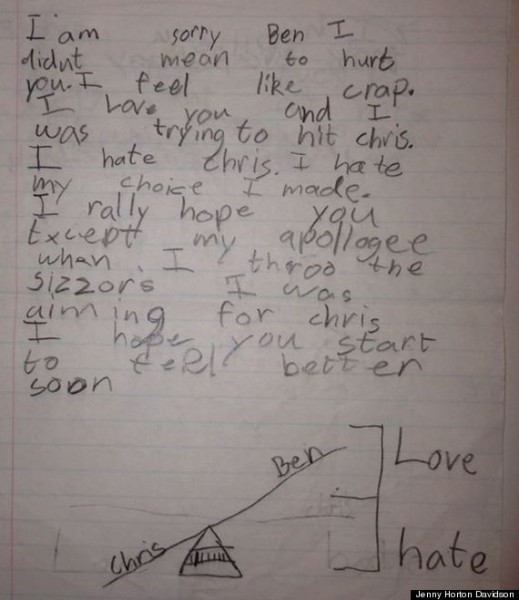 I am sorry Ben I
didnt mean to hurt
you. I feel like crap.
I Love you and I
was trying to hit chris.
I hate chris. I hate
my choice I made.
I rally hope you
Except my apollogee
whan I throo the
sizzors I was
aiming for chris
I hope you start
to feel better
soon
Ben
Love
Chris
hate
Jenny Horton Davidson